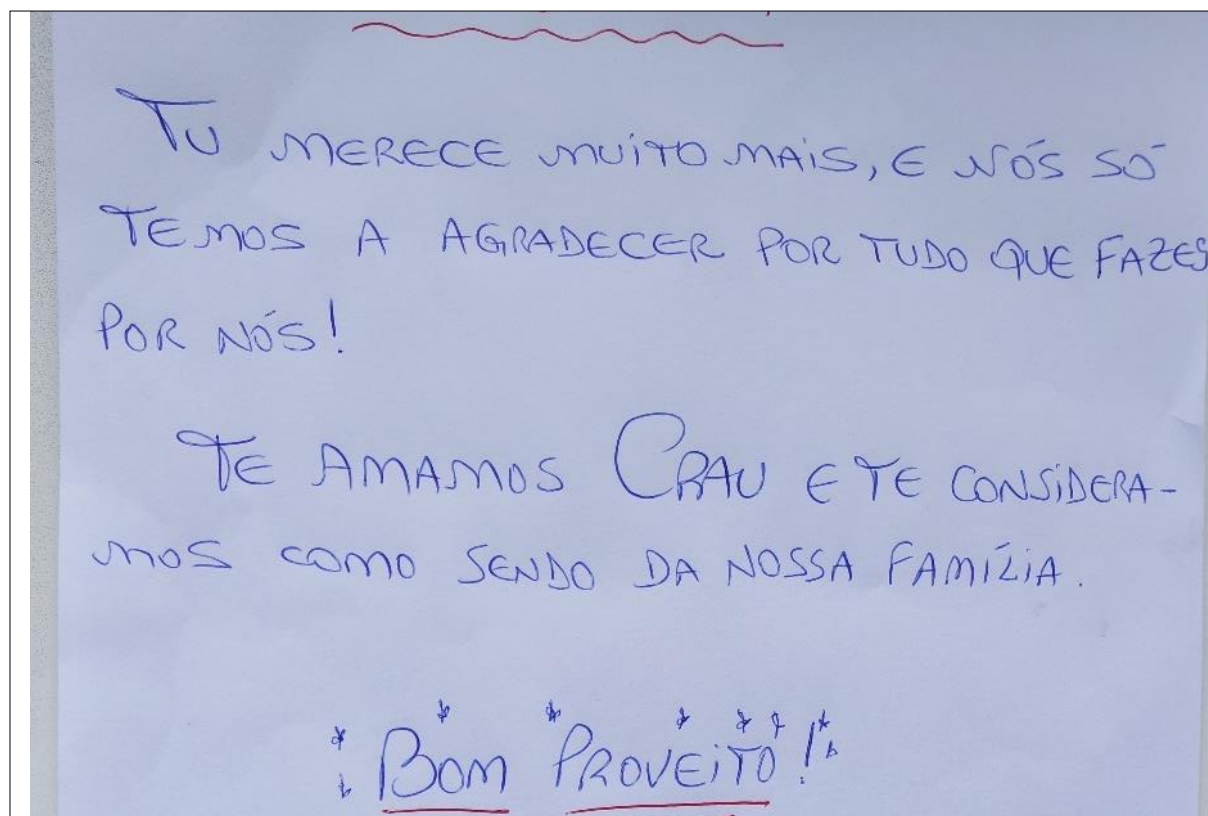 Tu MERECE MUiTO MAiS, E NÓS SÓ
TEMOS A AGRADECER POR TUDO QUE FAZES
POR NÓS!
TE AMAMOS CRAU E TE CONSiDERA-
MOS COMO SENDO DA NOSSA FAMÍLiA.
BOM PROVEiTO!